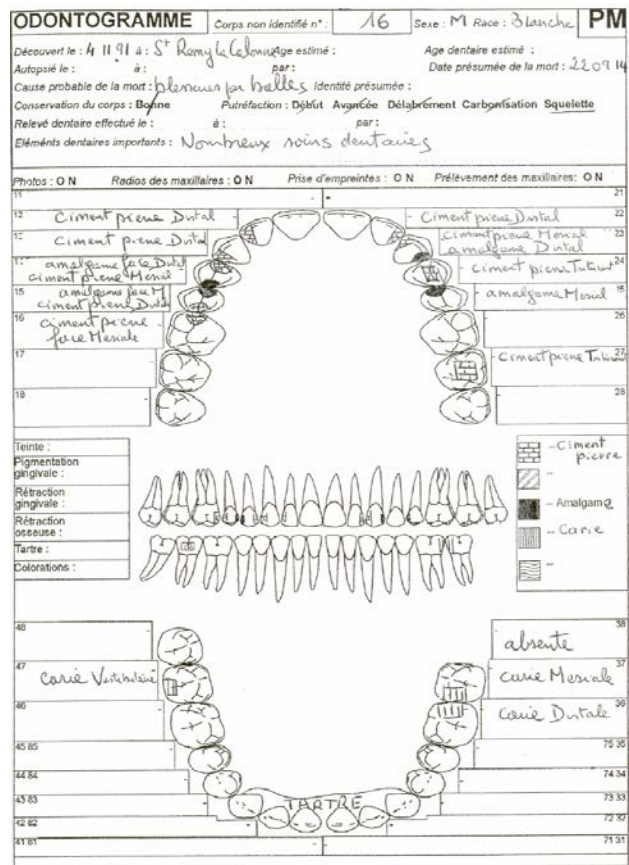 ODONTOGRAMME Corps non identifié n° : 16 Sexe : M Race : Blanche PM
Découvert le : 4 11 91 à : St Remy la Calonne Age estimé : Age dentaire estimé :
Autopsié le : à : par : Date présumée de la mort : 220914
Cause probable de la mort : blessures par balles Identité présumée :
Conservation du corps : Bonne Putréfaction : Début Avancée Délabrement Carbonisation Squelette
Relevé dentaire effectué le : à : par :
Eléments dentaires importants : Nombreux soins dentaires
Photos : O N Radios des maxillaires : O N Prise d'empreintes : O N Prélèvement des maxillaires : O N
11 21
12 Ciment pierre Distal Ciment pierre Distal 22
Ciment pierre Distal ciment pierre Mesial 23
amalgame Distal
amalgame face Distal ciment pierre Triturant 24
ciment pierre Mesial
15 amalgame face M amalgame Mesial
ciment pierre Distal
16 ciment pierre 26
face Mesiale
17 Ciment pierre Triturant 27
18 28
Teinte :
Pigmentation
gingivale :
Rétraction
gingivale :
Rétraction
osseuse :
Tartre :
Colorations :
- Ciment
pierre
-
- Amalgame
- Carie
-
48 absente 38
47 Carie Vestibulaire Carie Mesiale 37
46 Carie Distale 36
45 85 75 35
44 84 74 34
43 83 TARTRE 73 33
42 82 72 32
41 81 71 31